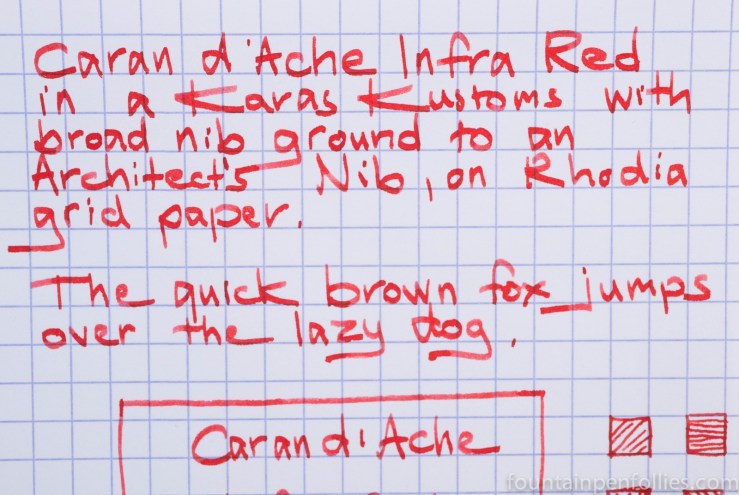 Caran d'Ache Infra Red
in a Karas Kustoms with
broad nib ground to an
Architect's Nib, on Rhodia
grid paper.
The quick brown fox jumps
over the lazy dog.
Caran d'Ache
fountainpenfollies.com